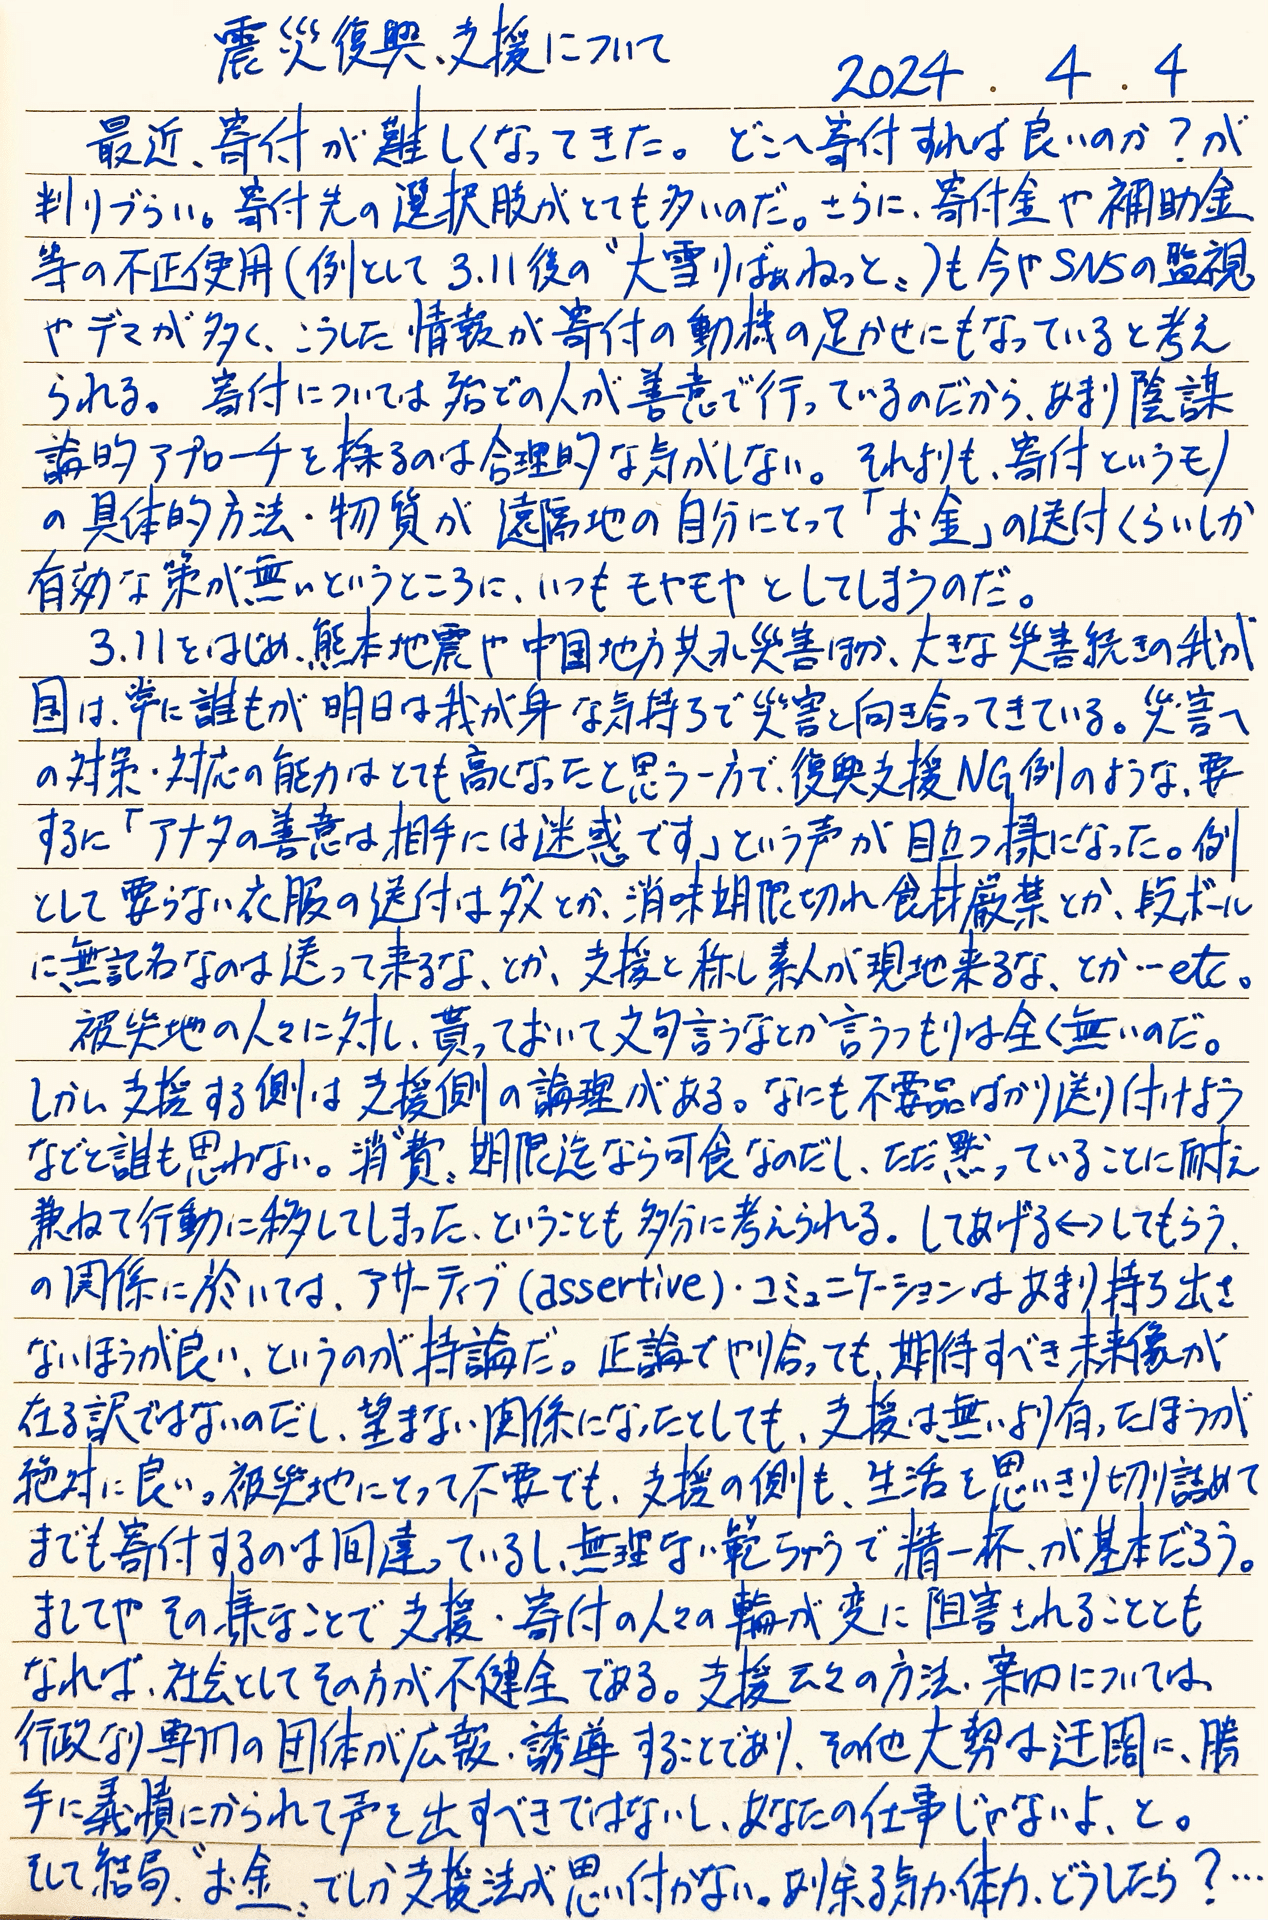 震災復興、支援について
2024.4.4
最近、寄付が難しくなってきた。どこへ寄付すれば良いのか?が
判りづらい。寄付先の選択肢がとても多いのだ。さらに、寄付金や補助金
等の不正使用(例として3.11後の〝大雪りばぁねっと〟)も今やSNSの監視
やデマが多く、こうした情報が寄付の動機の足かせにもなっていると考え
られる。寄付については殆どの人が善意で行っているのだから、あまり陰謀
論的アプローチを採るのは合理的な気がしない。それよりも、寄付というモノ
の具体的方法・物質が遠隔地の自分にとって「お金」の送付くらいしか
有効な策が無いというところに、いつもモヤモヤとしてしまうのだ。
3.11をはじめ、熊本地震や中国地方洪水災害ほか、大きな災害続きの我が
国は、常に誰もが明日は我が身な気持ちで災害と向き合ってきている。災害へ
の対策・対応の能力はとても高くなったと思う一方で、復興支援NG例のような、要
するに「アナタの善意は相手には迷惑です」という声が目立つ様になった。例
として要らない衣服の送付はダメとか、消味期限切れ食材厳禁とか、段ボール
に無記名なのは送って来るな、とか、支援と称し素人が現地来るな、とか…etc。
被災地の人々に対し、貰っておいて文句言うなとか言うつもりは全く無いのだ。
しかし支援する側は支援側の論理がある。なにも不要品ばかり送り付けよう
などと誰も思わない。消〝費〟期限迄なら可食なのだし、ただ黙っていることに耐え
兼ねて行動に移してしまった、ということも多分に考えられる。してあげる↔してもらう、
の関係に於いては、アサーティブ(assertive)・コミュニケーションはあまり持ち出さ
ないほうが良い、というのが持論だ。正論でやり合っても、期待すべき未来像が
在る訳ではないのだし、望まない関係になったとしても、支援は無いより有ったほうが
絶対に良い。被災地にとって不要でも、支援の側も、生活を思いきり切り詰めて
までも寄付するのは間違っているし、無理ない範ちゅうで精一杯、が基本だろう。
ましてやその様なことで支援・寄付の人々の輪が変に阻害されることとも
なれば、社会としてその方が不健全である。支援云々の方法・案内については、
行政なり専門の団体が広報・誘導することであり、その他大勢は迂闊に、勝
手に義憤にかられて声を出すべきではないし、あなたの仕事じゃないよ、と。
そして結局、〝お金〟でしか支援法が思い付かない。あり余る気力・体力、どうしたら?…